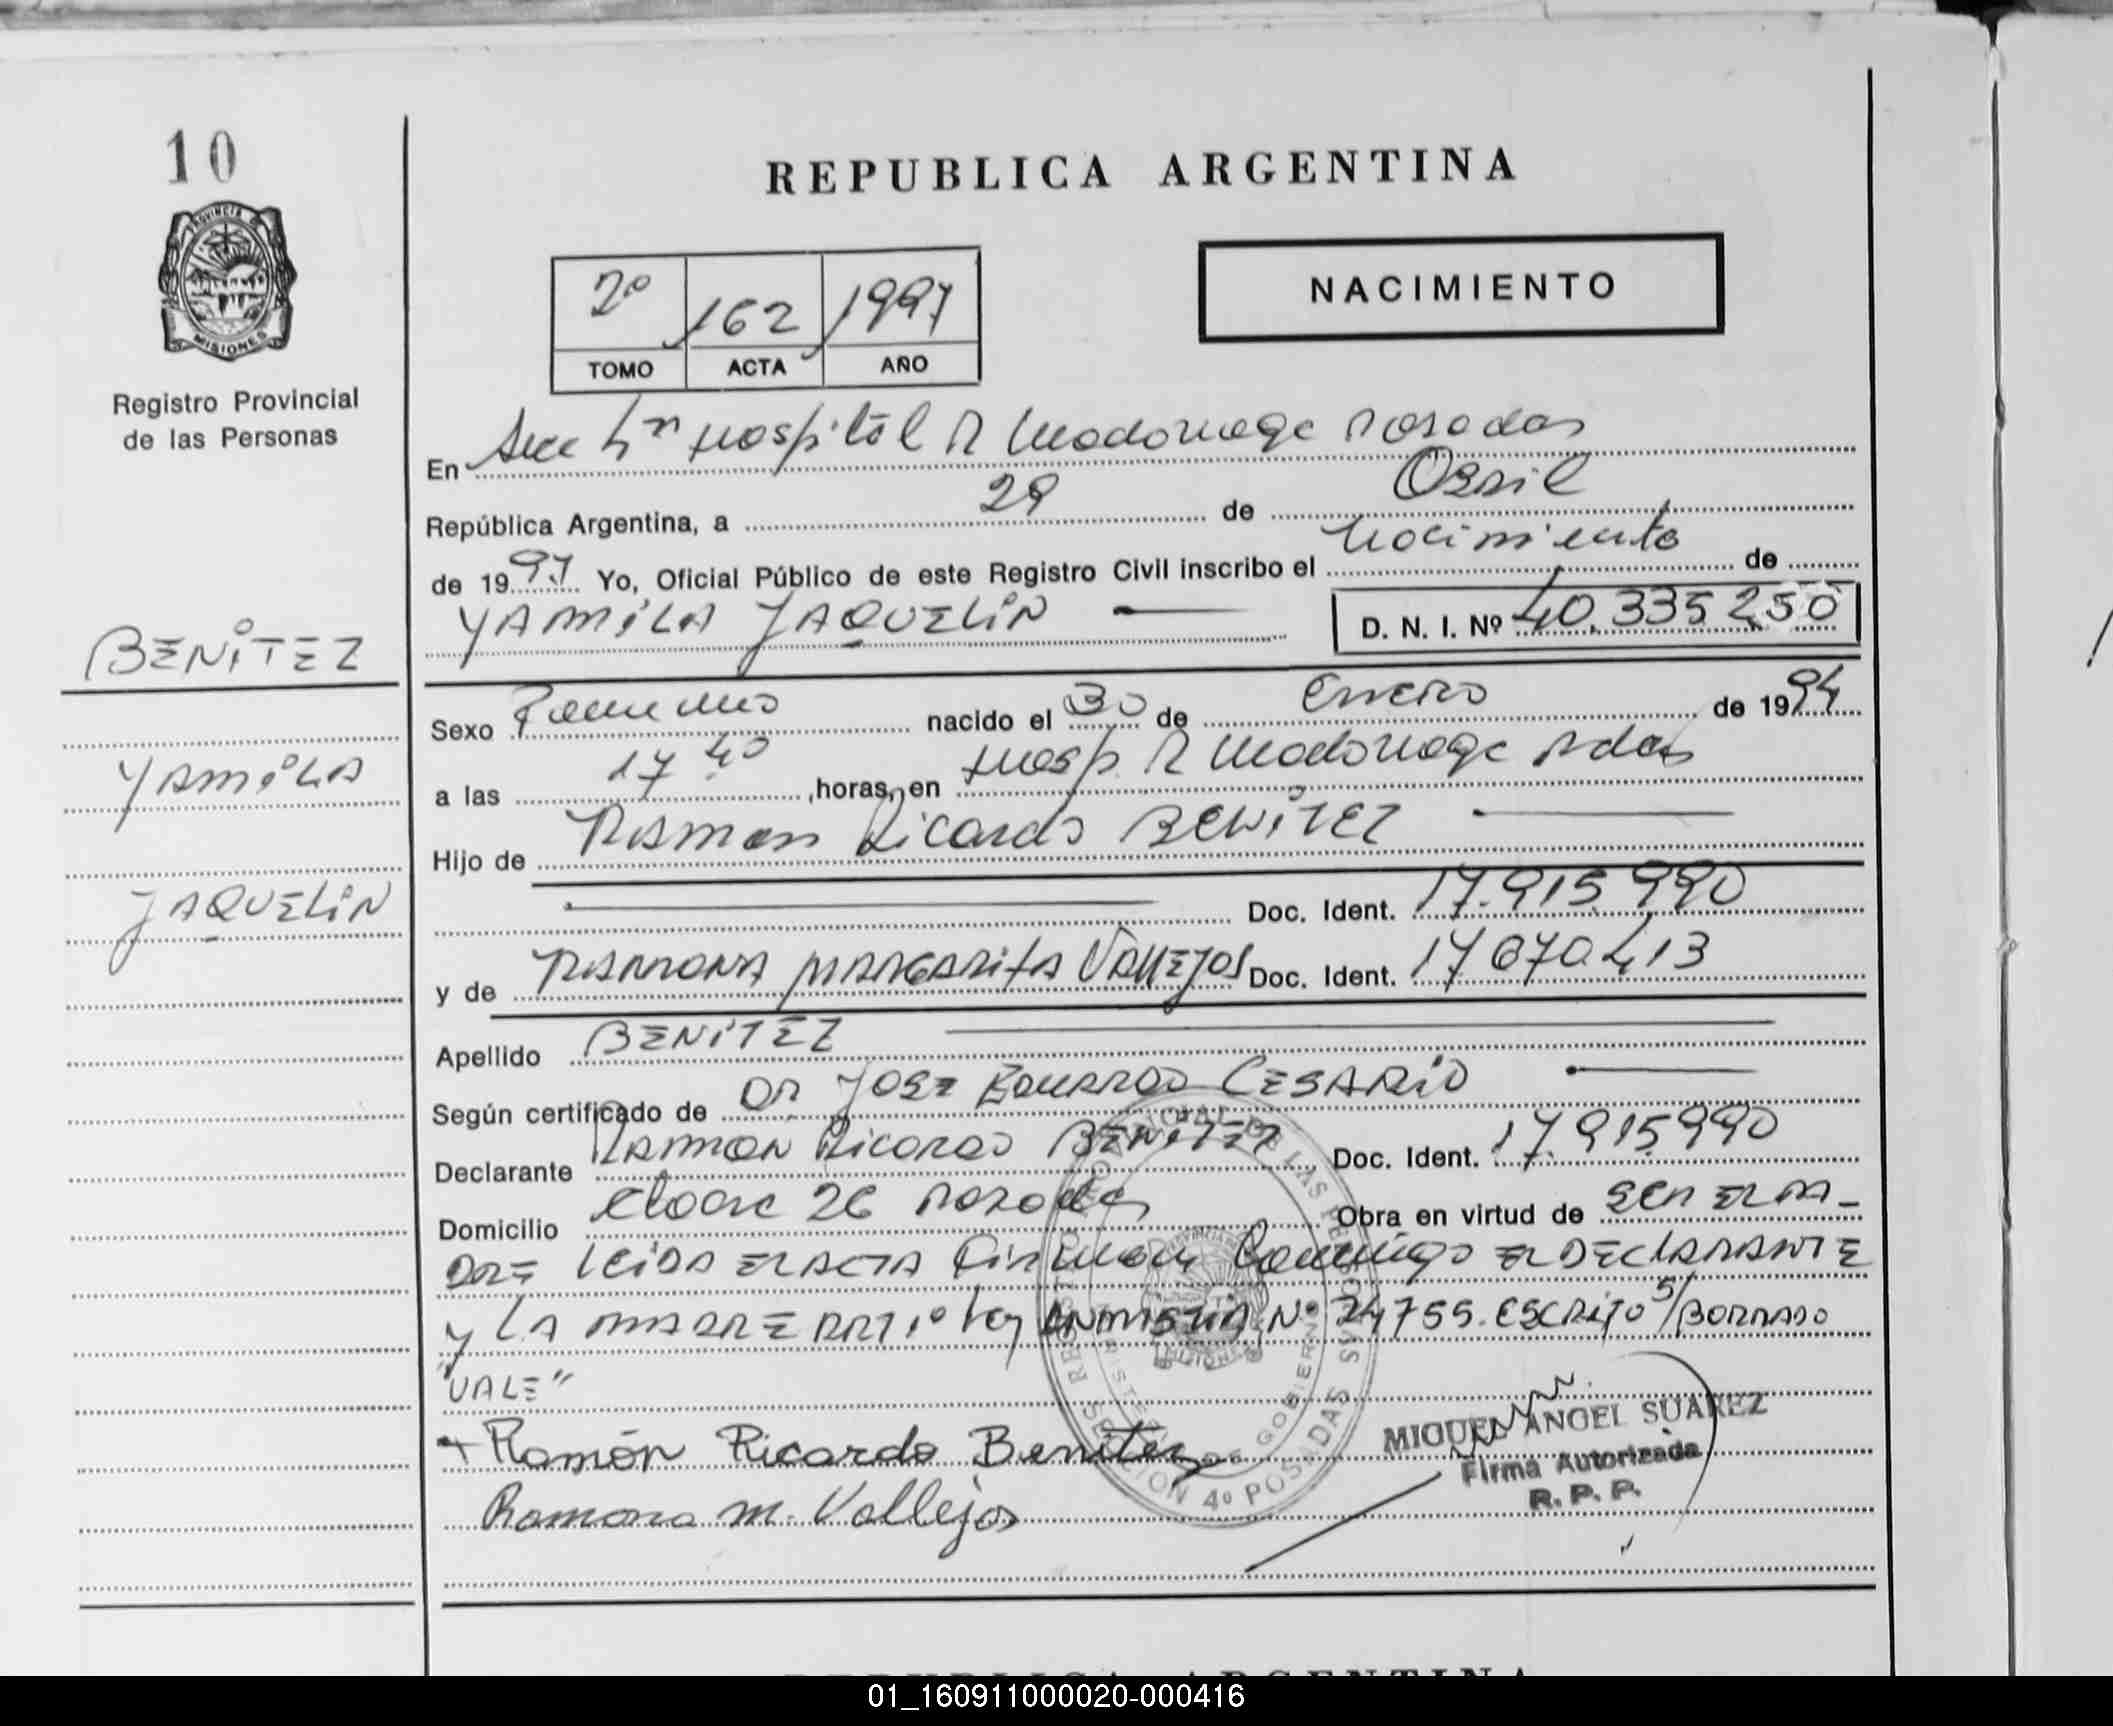 10
REPUBLICA ARGENTINA
PROVINCIA DE
MISIONES
Registro Provincial
de las Personas
NACIMIENTO
2º 162 1997
TOMO ACTA AÑO
En Hospital R Madariaga Posadas
República Argentina, a 29 de Abril
de 1997 Yo, Oficial Público de este Registro Civil inscribo el Nacimiento de
YAMILA JAQUELIN D. N. I. Nº 40.335 250
BENITEZ
YAMILA
JAQUELIN
Sexo Femenino nacido el 30 de Enero de 1994
a las 17 40 ,horas, en Hosp. R Madariaga Pdas
Hijo de Ramon Ricardo BENITEZ
Doc. Ident. 17.915.990
y de RAMONA MARGARITA VALLEJOS Doc. Ident. 17 670.413
Apellido BENITEZ
Según certificado de DR JOSE EDUARDO CESARIO
Declarante RAMON Ricardo BENITEZ Doc. Ident. 17.915.990
Domicilio 26 Posadas Obra en virtud de SER EL PA-
DRE LEIDA EL ACTA Firman Conmigo EL DECLARANTE
Y LA MADRE ART 1º Ley AMNISTIA Nº 24755. ESCRITO S/BORRADO
"VALE"
Ramón Ricardo Benitez
Ramona M. Vallejos
REGISTRO PROVINCIAL DE LAS PERSONAS
MINISTERIO DE GOBIERNO
SECCION 4º POSADAS
MISIONES
MIGUEL ANGEL SUAREZ
Firma Autorizada
R. P. P.
REPUBLICA ARGENTINA
01_160911000020-000416